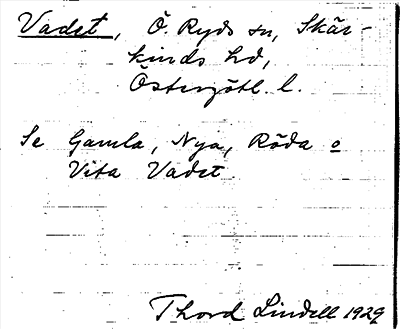 Vadet, Ö. Ryds sn, Skär-
kinds hd,
Östergötl. l.
Se Gamla, Nya, Röda o
Vita Vadet.
Thord Lindell 1929